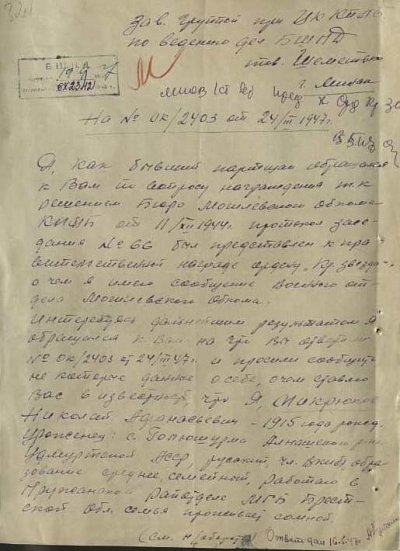 Зав. группой при ЦК КП/б/Б
по ведению дел БШПД
тов. Шеметов
г. Минск
На № ОК/2403 от 24/III 1947г.
Я, как бывший партизан обращался
к Вам по вопросу награждения т.к
решением Бюро Могилевского обкома
КП/б/Б от 11/XII 1944г. протокол засе-
дания № 66 был представлен к пра-
вительственной награде ордену "Кр. звезда",
о чем я имею сообщение Военного от-
дела Могилевского обкома.
Интересуясь дальнейшим результатом Я
обращался к Вам, на что Вы ответили
№ ОК/2403 от 24/III 47г. и просили сообщить
не которые данные о себе, о чем ставлю
Вас в известность, что Я,
Николай Афанасьевич - 1915 года рожд.
Уроженец: с. Голюшурма Алнашского р-на
Удмуртской АССР, русский, чл. ВКП/б/, обра-
зование среднее, семейный, работаю в
Пружанском Райотделе МГБ Брест-
ской обл. семья проживает со мной.
(См. н/обороте)
Ответ дан